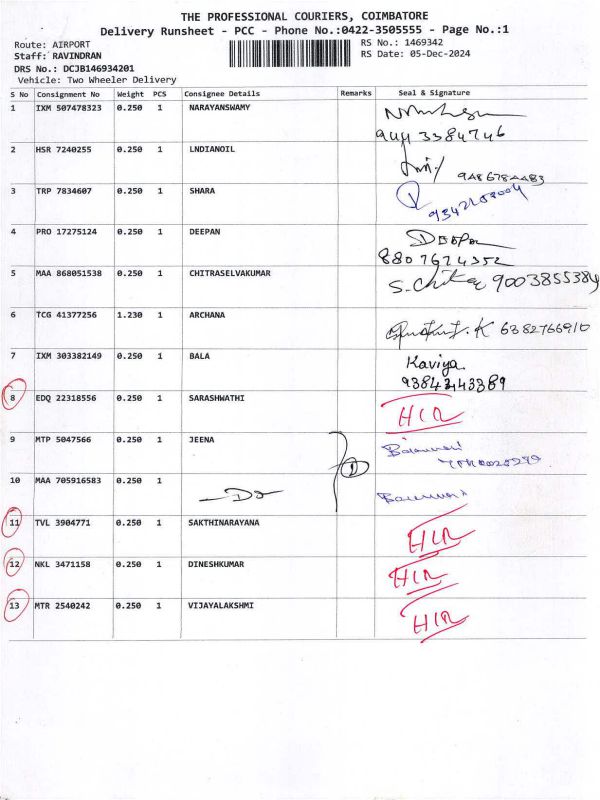 THE PROFESSIONAL COURIERS, COIMBATORE
Delivery Runsheet - PCC - Phone No.:0422-3505555 - Page No.:1
Route: AIRPORT RS No.: 1469342
Staff: RAVINDRAN RS Date: 05-Dec-2024
DRS No.: DCJB146934201
Vehicle: Two Wheeler Delivery
S No Consignment No Weight PCS Consignee Details Remarks Seal & Signature
1 IXM 507478323 0.250 1 NARAYANSWAMY
944 3384746
2 HSR 7240255 0.250 1 LNDIANOIL
9486784483
3 TRP 7834607 0.250 1 SHARA
4 PRO 17275124 0.250 1 DEEPAN DEEPAN
8807624352
5 MAA 868051538 0.250 1 CHITRASELVAKUMAR S. Chitra 9003855384
6 TCG 41377256 1.230 1 ARCHANA K 6382766910
7 IXM 303382149 0.250 1 BALA Kaviya
8 EDQ 22318556 0.250 1 SARASHWATHI HLR
9 MTP 5047566 0.250 1 JEENA
10 MAA 705916583 0.250 1 Do
11 TVL 3904771 0.250 1 SAKTHINARAYANA HLR
12 NKL 3471158 0.250 1 DINESHKUMAR HLR
13 MTR 2540242 0.250 1 VIJAYALAKSHMI HLR